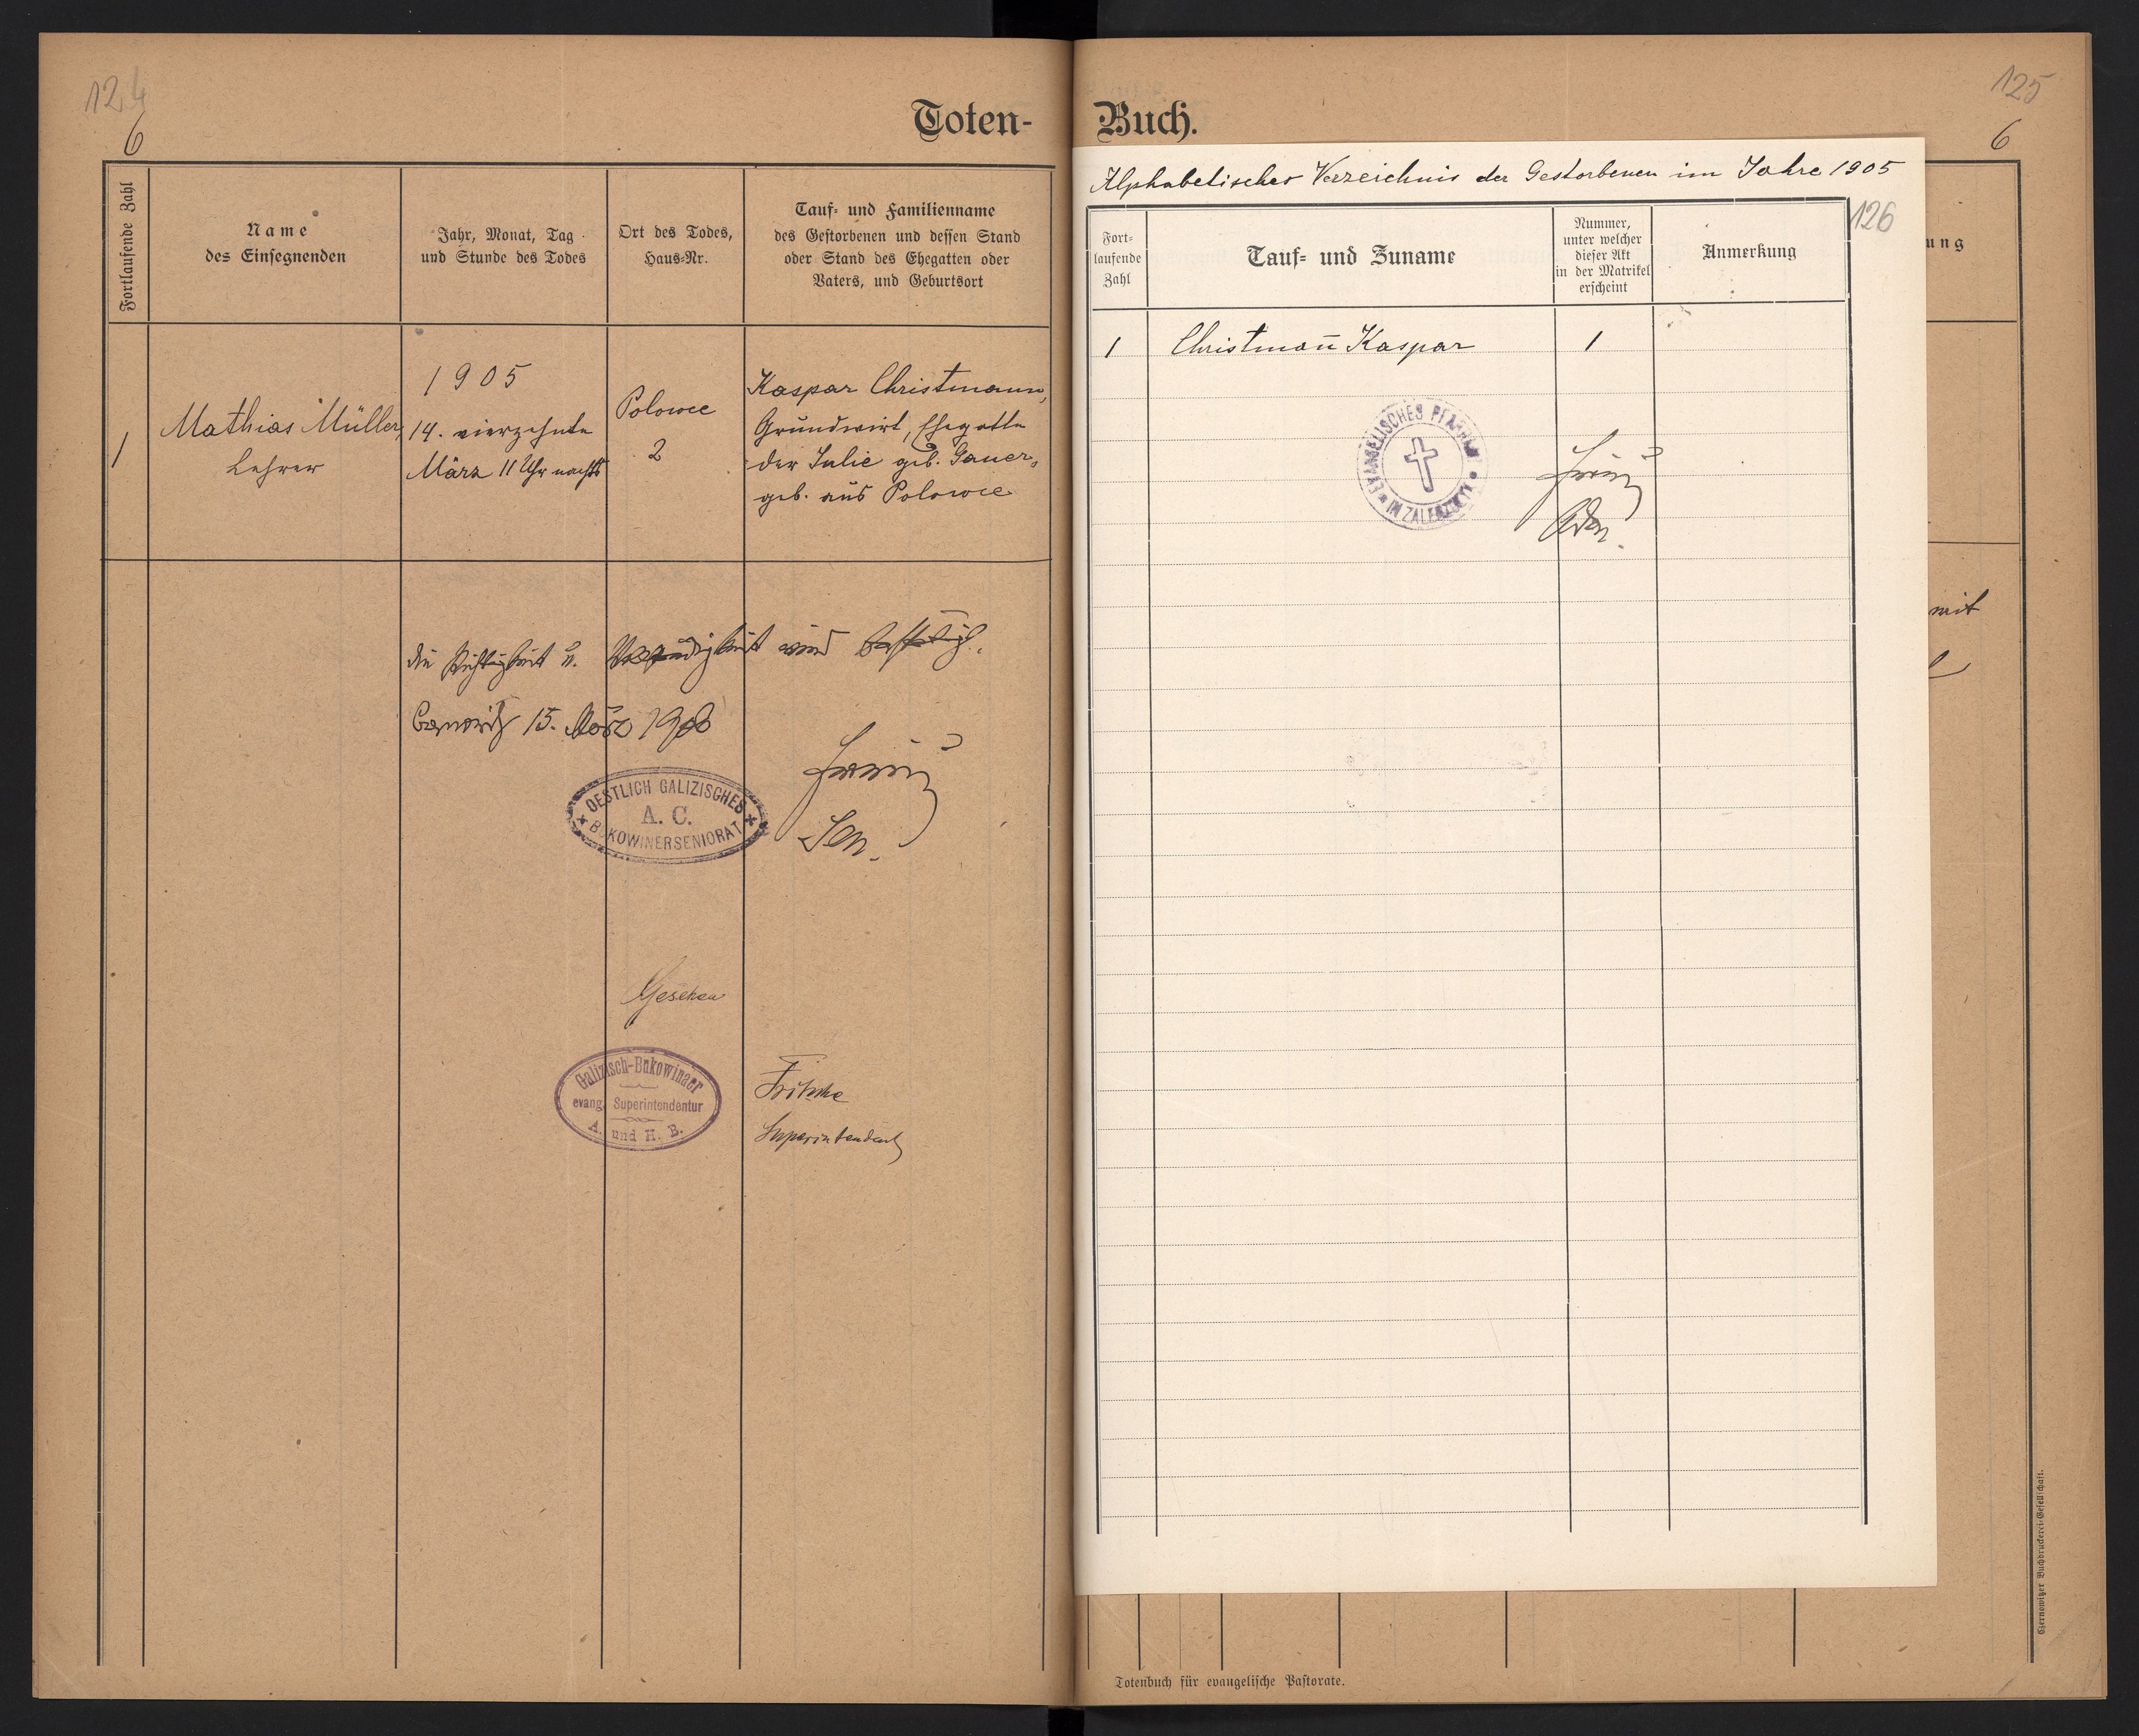 124
6
Toten-
Fortlaufende Zahl
Name
des Einsegnenden
Jahr, Monat, Tag
und Stunde des Todes
Ort des Todes,
Haus-Nr.
Tauf- und Familienname
des Gestorbenen und dessen Stand
oder Stand des Ehegatten oder
Vaters, und Geburtsort
1
Mathias Müller,
Lehrer
1905
14. vierzehnte
März 11 Uhr nachts
Polowce
2
Kaspar Christmann,
Grundwirt, Ehegatte
der Julie geb. Gauer,
geb. aus Polowce
die Richtigkeit u. Vollständigkeit wird bestätigt.
15. März 1906
OESTLICH GALIZISCHES
A. C.
BUKOWINERSENIORAT
Sen.
Gesehen
Galizisch-Bukowinaer
evang. Superintendentur
A. und H. B.
Fritsche
Superintendent
125
6
Buch.
Alphabetisches Verzeichnis der Gestorbenen im Jahre 1905
126
Fort-
laufende
Zahl
Tauf- und Zuname
Nummer,
unter welcher
dieser Akt
in der Matrikel
erscheint
Anmerkung
ung
1
Christman̄ Kaspar
1
EVANGELISCHES PFARRAMT
IN ZALESZCZYKI
mit
Totenbuch für evangelische Pastorate.
Czernowitzer Buchdruckerei-Gesellschaft.